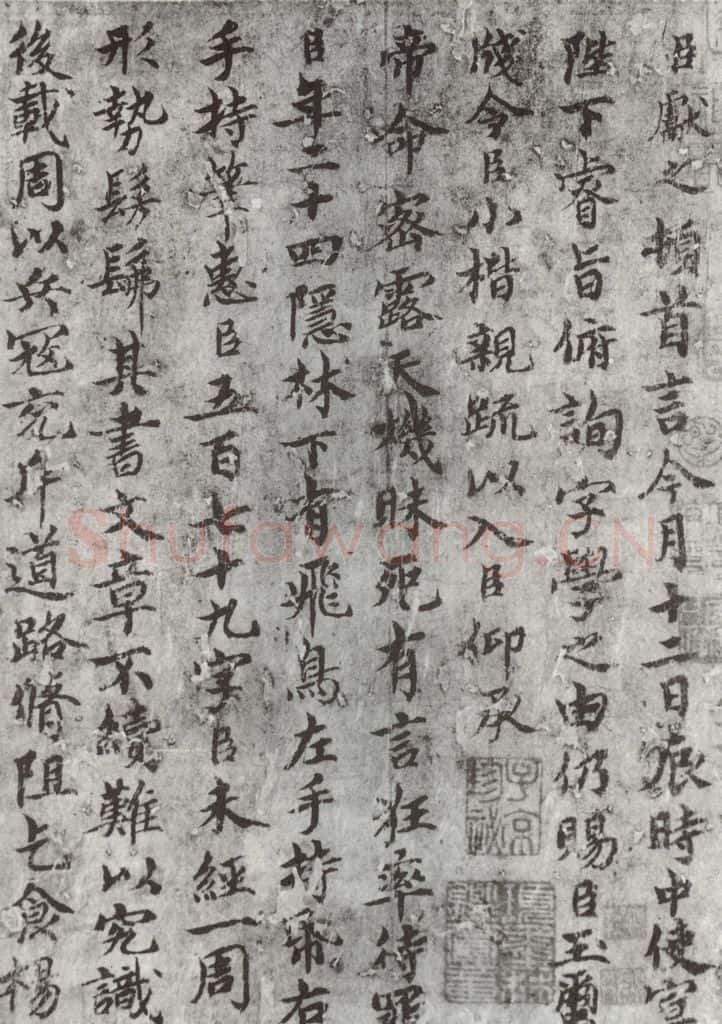 臣獻之頓首言今月十二日辰時中使宣
陛下睿旨俯詢字學之由仍賜臣玉璽
牋令臣小楷親疏以入臣仰承
帝命密露天機昧死有言狂率待罪
臣年二十四隱林下有飛鳥左手持帋右
手持筆惠臣五百七十九字臣未經一周
形勢髣髴其書文章不續難以究識
後載周以兵寇充斥道路脩阻乞食楊
子京珍祕
Shufawang.CN